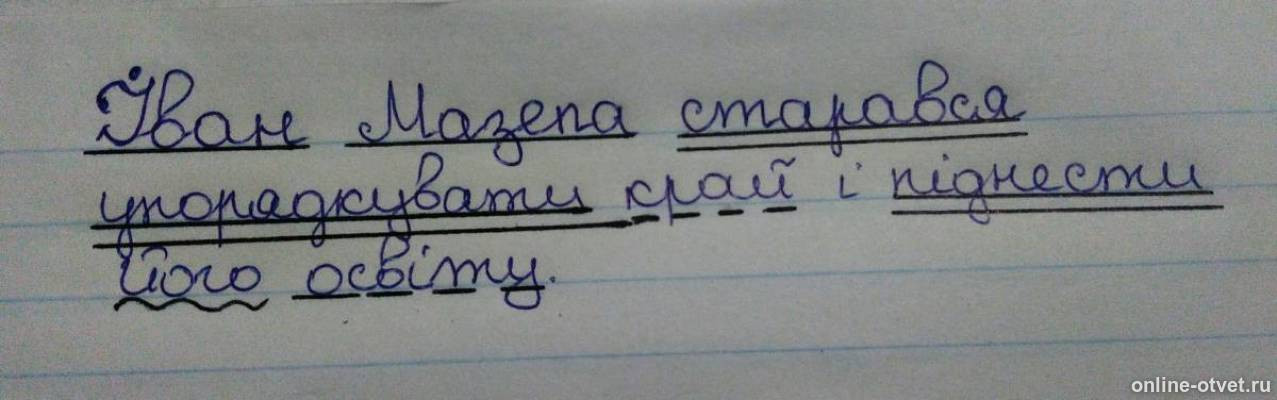 Іван Мазепа старався
упорядкувати край і піднести
його освіту.
online-otvet.ru